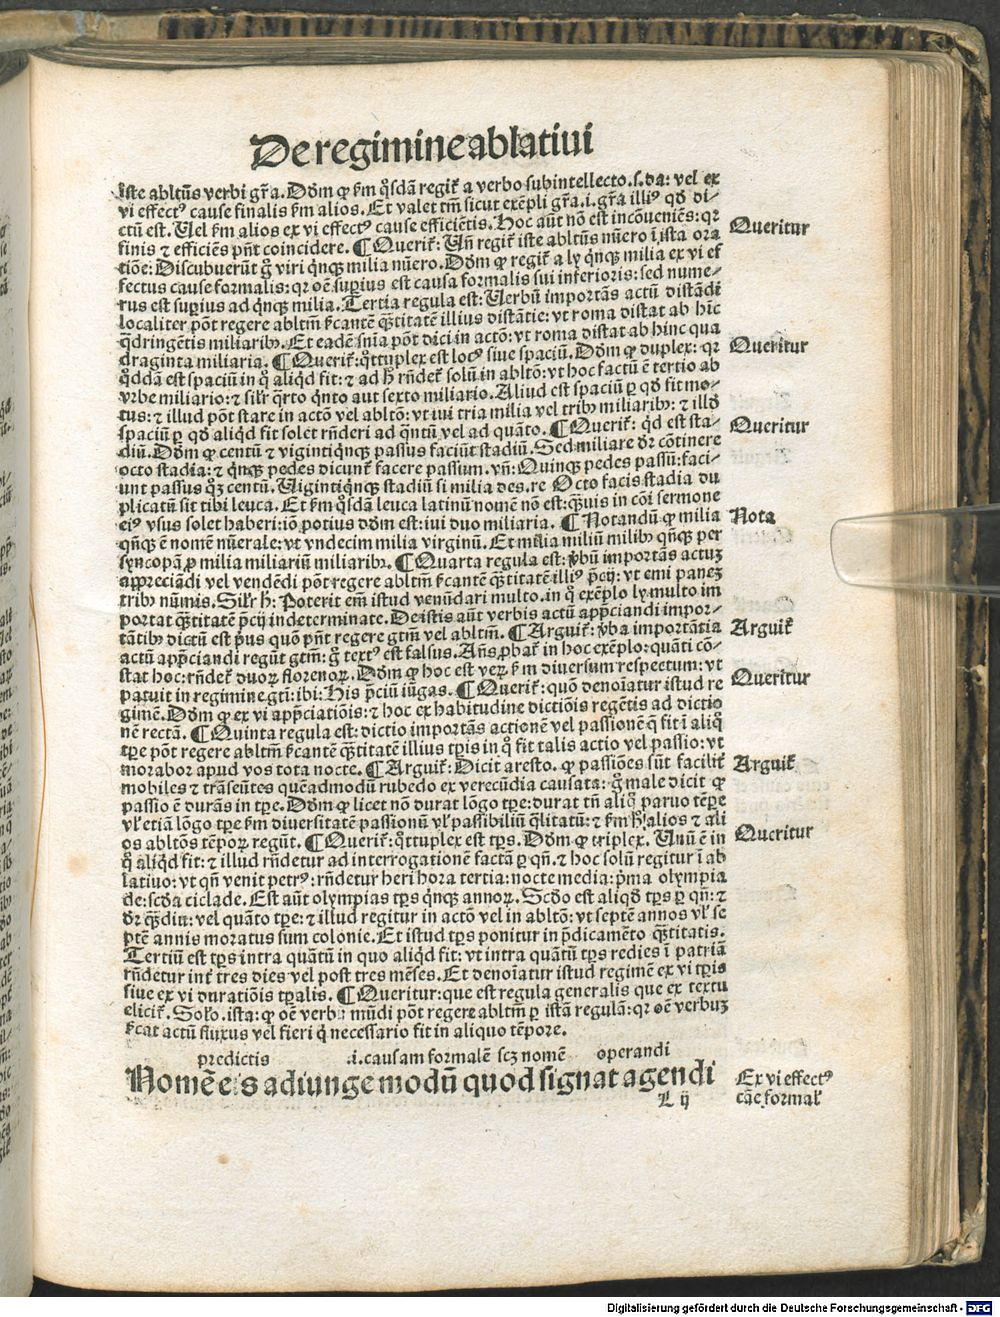 De regimine ablatiui
iste abltūs verbi gr̄a. Dd̄m ꝙ ẜm q̊sdā regit̄ a verbo subintellecto.s.da: vel ex
vi effectꝰ cause finalis ẜm alios. Et valet tm̄ sicut exēpli gr̄a.i.gr̄a illiꝰ qd̄ di-
ctū est. Uel ẜm alios ex vi effectꝰ cause efficiētis. Hoc aūt nō est incōueniēs: qr
finis ⁊ efficiēs pn̄t coincidere. ¶ Querit̄: Un̄ regit̄ iste abltūs nūero ī ista ora
tiōe: Discubuerūt g̊ viri qn̄qꝫ milia nūero. Dd̄m ꝙ regit̄ a ly qn̄qꝫ milia ex vi ef
fectus cause formalis: qr oē suꝑius est causa formalis sui inferioris: sed nume-
rus est suꝑius ad qn̄qꝫ milia. Tertia regula est: Uerbū importās actū distādi
localiter pōt regere abltm̄ ẜcantē q̄ꝫtitatē illius distātie: vt roma distat ab hīc
q̄dringētis miliaribꝫ. Et eadē sn̄ia pōt dici in actō: vt roma distat ab hinc qua
draginta miliaria. ¶ Querit̄: q̊ttuplex est locꝰ siue spaciū. Dd̄m ꝙ duplex: qr
q̊ddā est spaciū in q̊ aliqd fit: ⁊ ad h̄ rn̄det̄ solū in abltō: vt hoc factū ē tertio ab
vrbe miliario: ⁊ silr̄ q̄rto qn̄to aut sexto miliario. Aliud est spaciū ꝑ qd̄ fit mo-
tus: ⁊ illud pōt stare in actō vel abltō: vt iui tria milia vel tribꝫ miliaribꝫ: ⁊ illd̄
spaciū ꝑ qd̄ aliqd fit solet rn̄deri ad qn̄tū vel ad quāto. ¶ Querit̄: qd est sta-
diū. Dd̄m ꝙ centū ⁊ vigintiqn̄qꝫ passus faciūt stadiū. Sed miliare dr̄ cōtinere
octo stadia: ⁊ qn̄qꝫ pedes dicunt̄ facere passum. vn̄: Quinqꝫ pedes passū: faci-
unt passus qꝫ centū. Uigintiqn̄qꝫ stadiū si milia des.re Octo facis stadia du
plicatū sit tibi leuca. Et ẜm q̊sdā leuca latinū nomē nō est: q̄ꝫuis in cōi sermone
eiꝰ vsus solet haberi: iō potius dd̄m est: iui duo miliaria. ¶ Notandū ꝙ milia
qn̄qꝫ ē nomē nūerale: vt vndecim milia virginū. Et milia miliū milibꝫ qn̄qꝫ per
syncopā ꝓ milia miliariū miliaribꝫ. ¶ Quarta regula est: v̄bū importans actuꝫ
apꝓciādi vel vendēdi pōt regere abltm̄ ẜcantē q̄ꝫtitatē illiꝰ p̄cij: vt emi paneꝫ
tribꝫ nūmis. Silr̄ h̄: Poterit em̄ istud venūdari multo. in q̊ exēplo ly multo im
portat q̄ꝫtitatē p̄cij indeterminate. De istis aūt verbis actū app̄ciandi impor-
tātibꝫ dictū est p̄us quō pn̄t regere gtm̄ vel abltm̄. ¶ Arguit̄: v̄ba importātia
actū app̄ciandi regūt gtm̄: g̊ textꝰ est falsus. An̄s ꝓbat̄ in hoc exēplo: quāti cō-
stat hoc: rn̄det̄ duoꝝ florenoꝝ. Dd̄m ꝙ hoc est veꝝ ẜm diuersum respectum: vt
patuit in regimine gtī: ibi: His p̄ciū iūgas. ¶ Querit̄: quō denoīatur istud re
gimē. Dd̄m ꝙ ex vi app̄ciatiōis: ⁊ hoc ex habitudine dictiōis regētis ad dictio
nē rectā. ¶ Quinta regula est: dictio importās actionē vel passionē q̄ fit ī aliq̊
tꝑe pōt regere abltm̄ ẜcantē q̄ꝫtitatē illius tꝑis in q̊ fit talis actio vel passio: vt
morabor apud vos tota nocte. ¶ Arguit̄: Dicit aresto. ꝙ passiōes sūt facilit̄
mobiles ⁊ trāseūtes quēadmodū rubedo ex verecūdia causata: g̊ male dicit ꝙ
passio ē durās in tꝑe. Dd̄m ꝙ licet nō durat lōgo tꝑe: durat tn̄ aliq̊ paruo tēꝑe
vl̓ etiā lōgo tꝑe ẜm diuersitatē passionū vl̓ passibiliū q̄litatū: ⁊ ẜm h̄ alios ⁊ ali
os abltōs tēpoꝝ regūt. ¶ Querit̄: q̊ttuplex est tꝑs. Dd̄m ꝙ triplex. Unū ē in
q̊ aliqd fit: ⁊ illud rn̄detur ad interrogationē factā ꝑ qn̄. ⁊ hoc solū regitur ī ab
latiuo: vt qn̄ venit petrꝰ: rn̄detur heri hora tertia: nocte media: p̄ma olympia
de: scd̄a ciclade. Est aūt olympias tꝑs qn̄qꝫ annoꝝ. Scd̄o est aliqd̄ tꝑs ꝑ qn̄: ⁊
dr̄ q̄ꝫdiu: vel quāto tꝑe: ⁊ illud regitur in actō vel in abltō: vt septē annos vl̓ se
ptē annis moratus sum colonie. Et istud tꝑs ponitur in p̄dicamēto q̄ꝫtitatis.
Tertiū est tꝑs intra quātū in quo aliqd fit: vt intra quātū tꝑs redies ī patriā
rn̄detur int̄ tres dies vel post tres mēses. Et denoīatur istud regimē ex vi tꝑis
siue ex vi duratiōis tꝑalis. ¶ Queritur: que est regula generalis que ex textu
elicit̄. Solo. ista: ꝙ oē verbū mūdi pōt regere abltm̄ ꝑ istā regulā: qr oē verbuꝫ
ẜcat actū fluxus vel fieri q̄ necessario fit in aliquo tēpore.
predictis .i. causam formalē scꝫ nomē operandi
Nomē eis adiunge modū quod signat agendi
L ij
Queritur
Queritur
Queritur
Nota
Arguit̄
Queritur
Arguit̄
Queritur
Ex vi effectꝰ
cāe formal̓
Digitalisierung gefördert durch die Deutsche Forschungsgemeinschaft - DFG